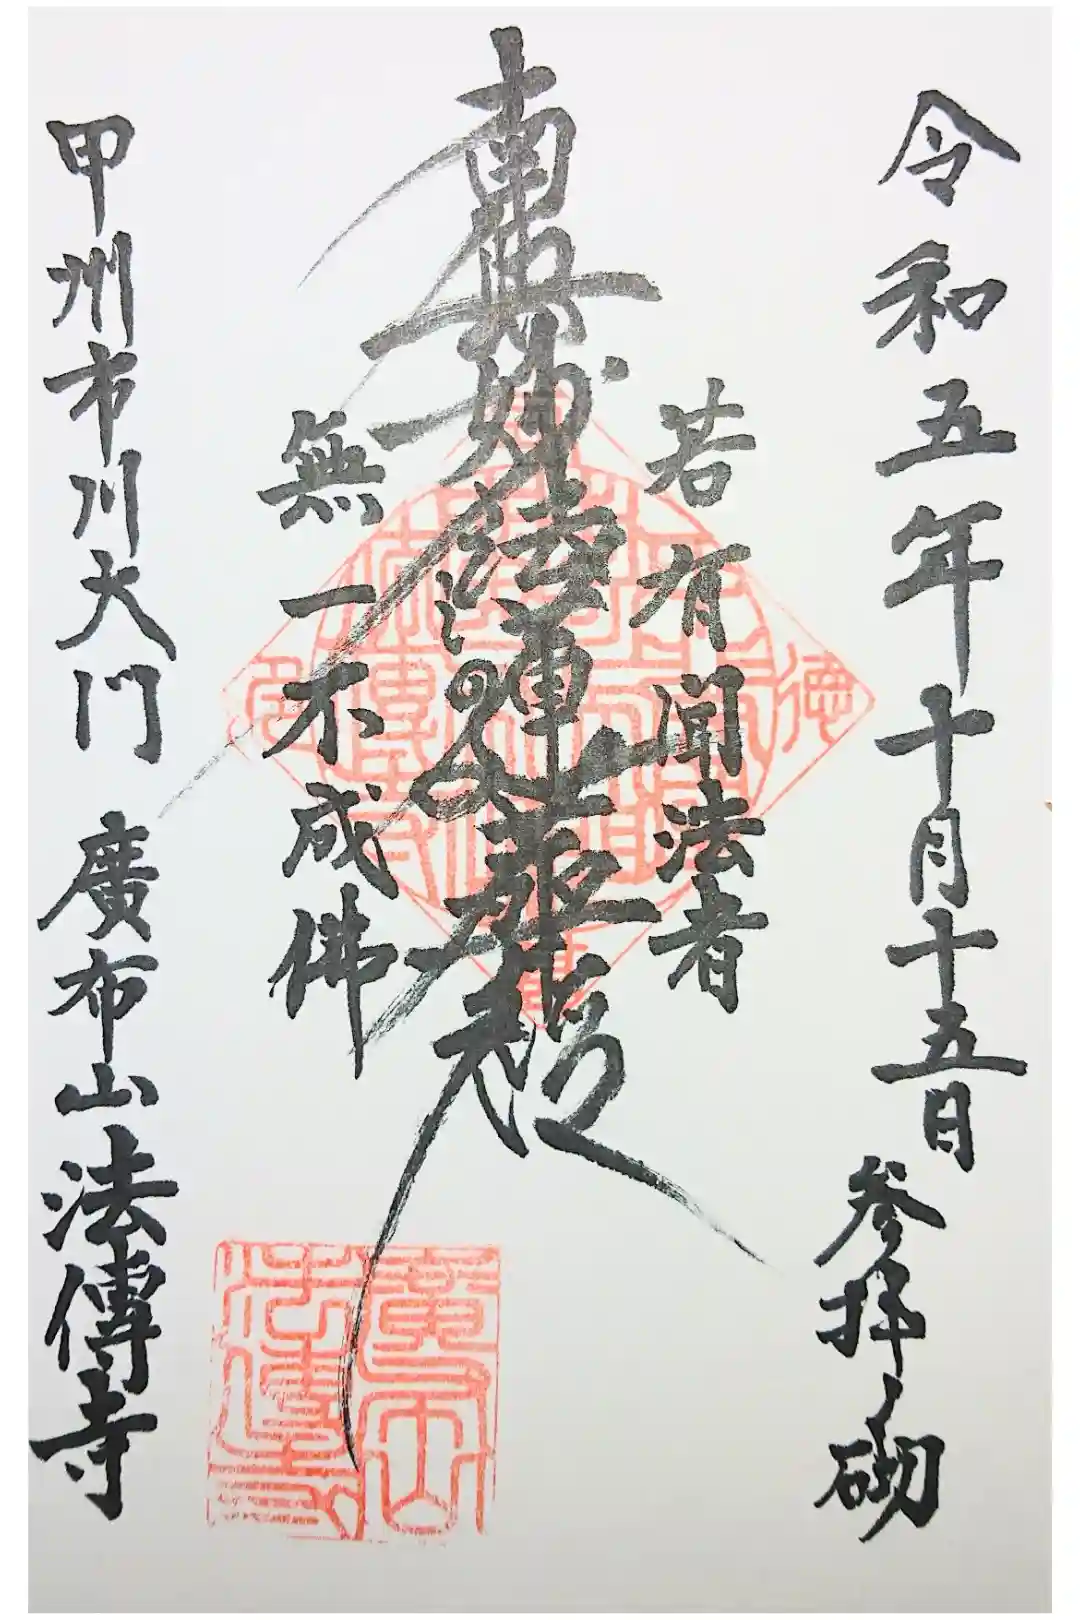 令和五年十月十五日 参拝ノ砌
若有聞法者
南無妙法蓮華経
無一不成佛
甲州市川大門 廣布山法傳寺